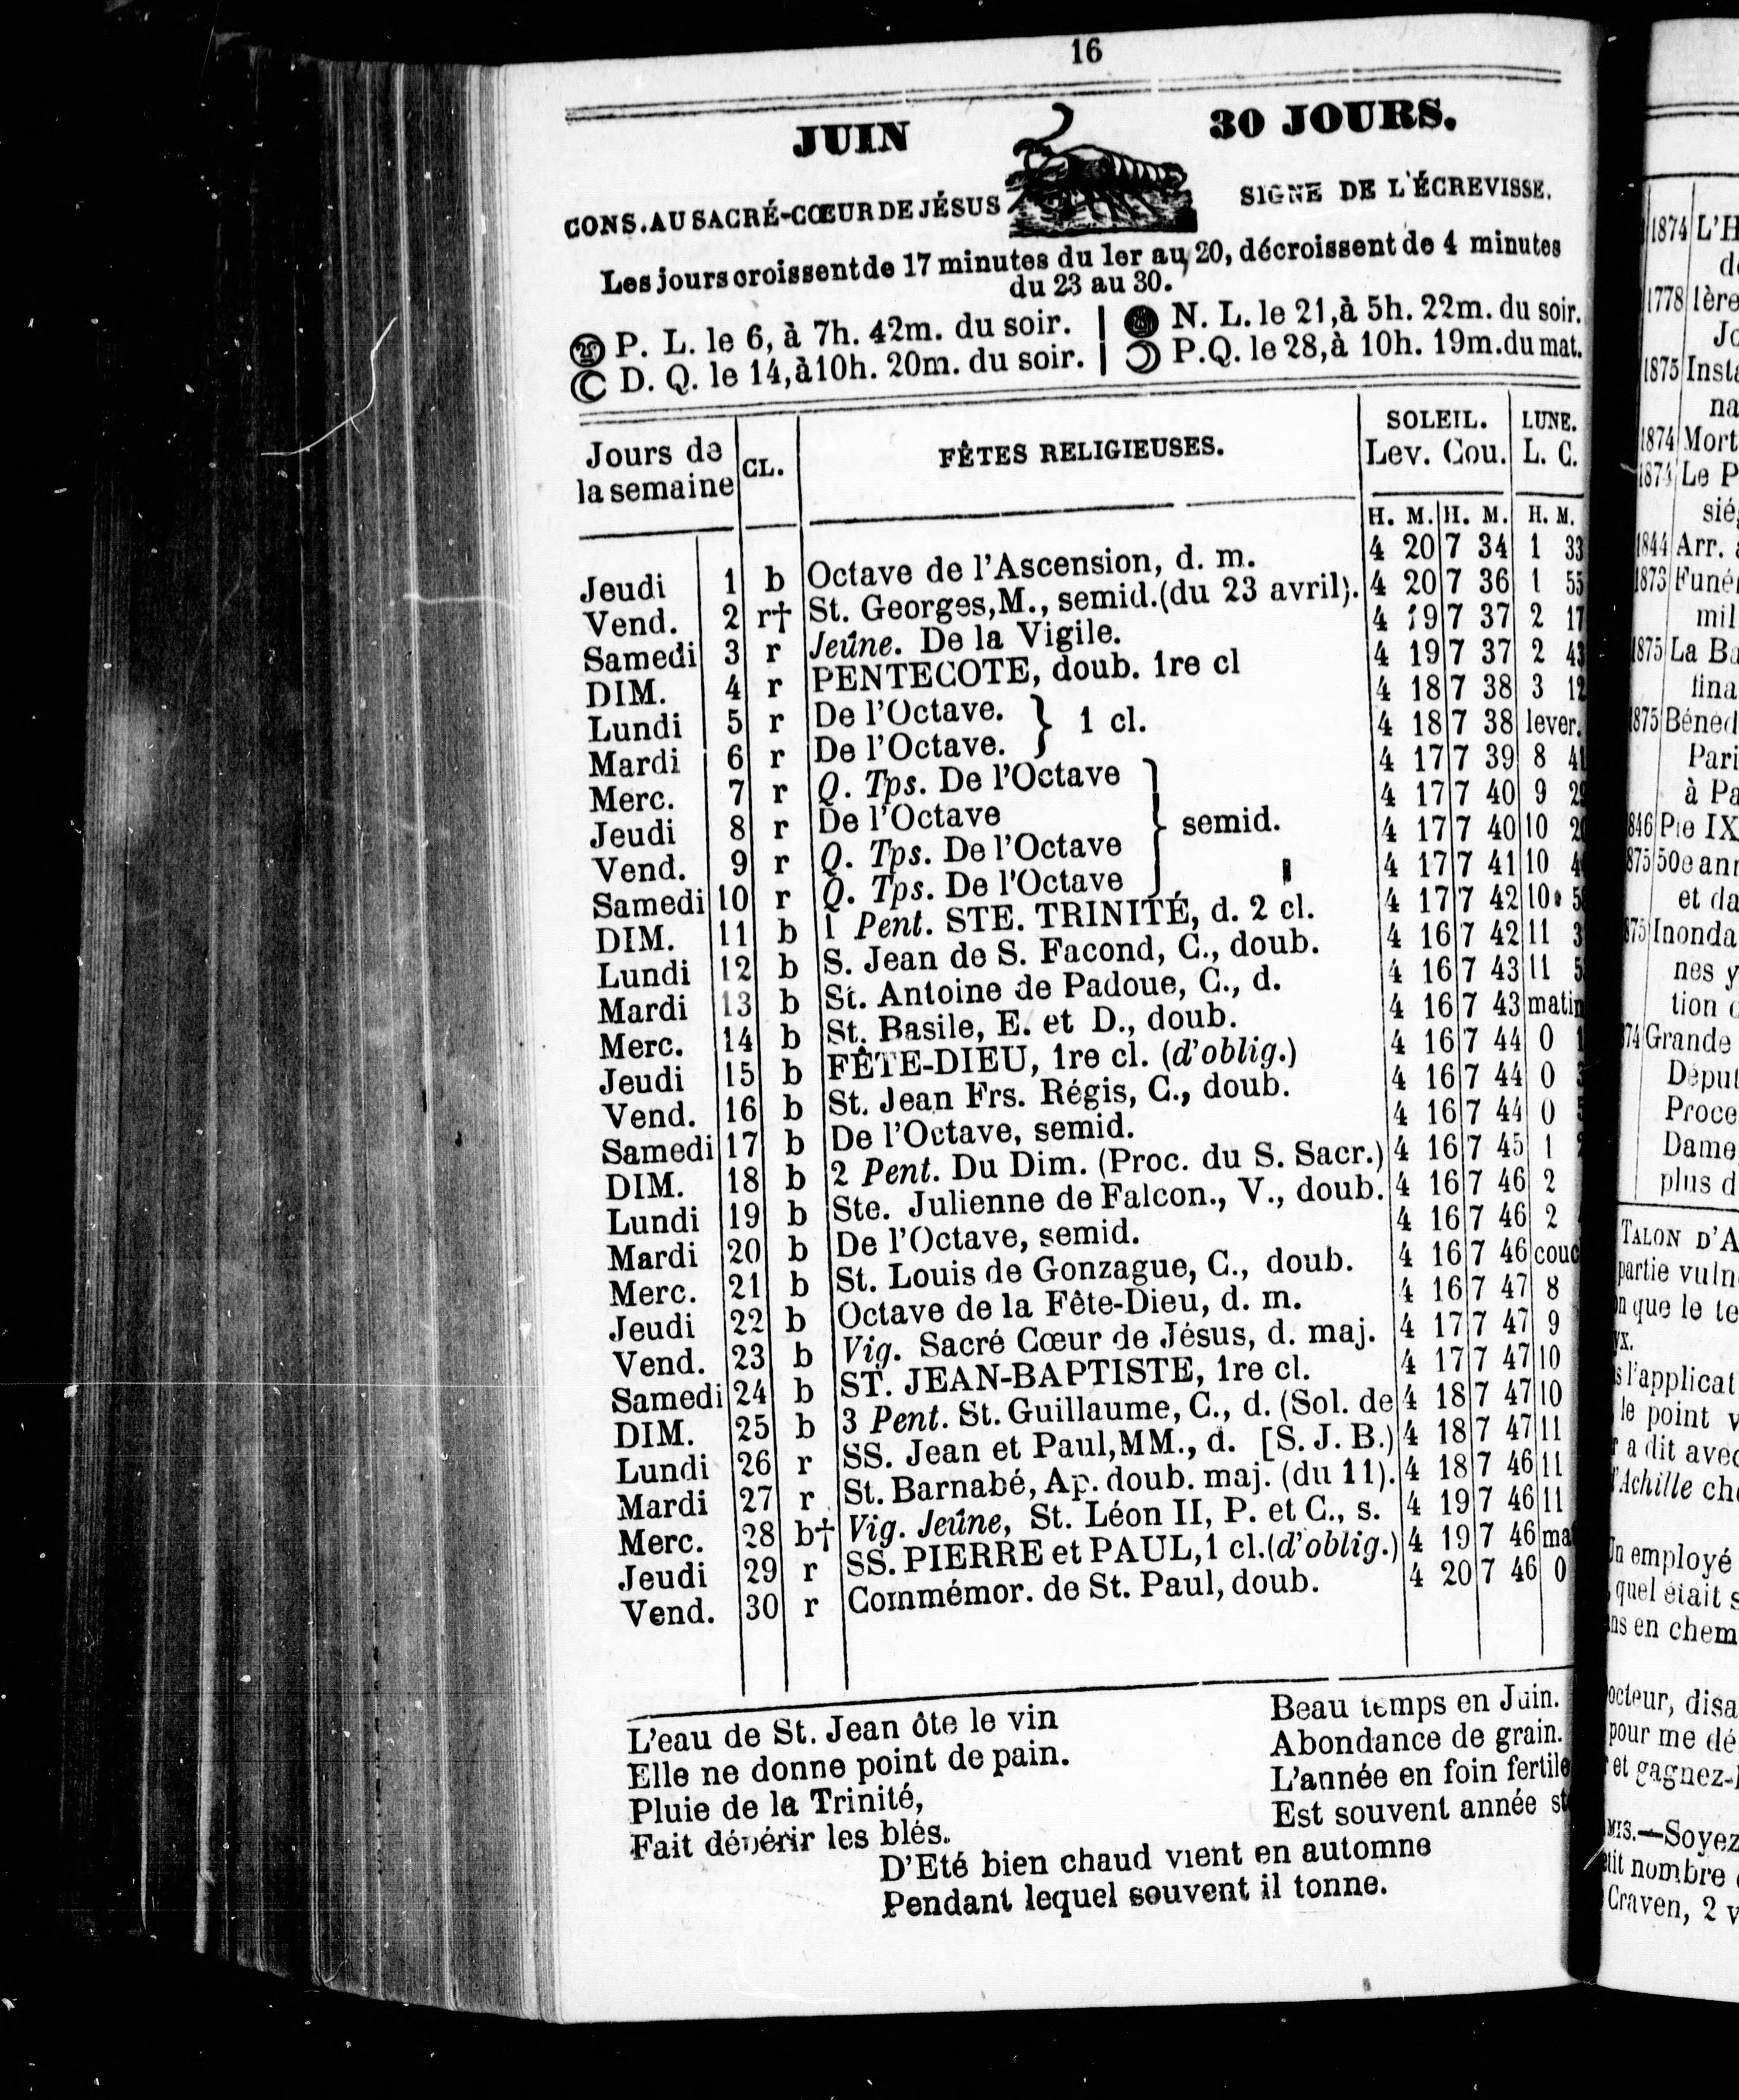 16
JUIN 30 JOURS.
CONS. AU SACRÉ-CŒUR DE JÉSUS SIGNE DE L'ÉCREVISSE.
Les jours croissent de 17 minutes du 1er au 20, décroissent de 4 minutes
du 23 au 30.
P. L. le 6, à 7h. 42m. du soir. | N. L. le 21, à 5h. 22m. du soir.
D. Q. le 14, à 10h. 20m. du soir. | P. Q. le 28, à 10h. 19m. du mat.
Jours de la semaine CL. FÊTES RELIGIEUSES. SOLEIL. LUNE.
Lev. Cou. L. C.
H. M. H. M. H. M.
Jeudi 1 b Octave de l'Ascension, d. m. 4 20 7 34 1 33
Vend. 2 r† St. Georges, M., semid. (du 23 avril). 4 20 7 36 1 55
Samedi 3 r Jeûne. De la Vigile. 4 19 7 37 2 17
DIM. 4 r PENTECOTE, doub. 1re cl 4 19 7 37 2 43
Lundi 5 r De l'Octave. } 1 cl. 4 18 7 38 3 12
Mardi 6 r De l'Octave. 4 18 7 38 lever.
Merc. 7 r Q. Tps. De l'Octave 4 17 7 39 8 41
Jeudi 8 r De l'Octave } semid. 4 17 7 40 9
Vend. 9 r Q. Tps. De l'Octave 4 17 7 40 10
Samedi 10 r Q. Tps. De l'Octave 4 17 7 41 10
DIM. 11 b 1 Pent. STE. TRINITÉ, d. 2 cl. 4 17 7 42 10
Lundi 12 b S. Jean de S. Facond, C., doub. 4 16 7 42 11
Mardi 13 b St. Antoine de Padoue, C., d. 4 16 7 43 11
Merc. 14 b St. Basile, E. et D., doub. 4 16 7 43 matin
Jeudi 15 b FÊTE-DIEU, 1re cl. (d'oblig.) 4 16 7 44 0
Vend. 16 b St. Jean Frs. Régis, C., doub. 4 16 7 44 0
Samedi 17 b De l'Octave, semid. 4 16 7 44 0
DIM. 18 b 2 Pent. Du Dim. (Proc. du S. Sacr.) 4 16 7 45 1
Lundi 19 b Ste. Julienne de Falcon., V., doub. 4 16 7 46 2
Mardi 20 b De l'Octave, semid. 4 16 7 46 2
Merc. 21 b St. Louis de Gonzague, C., doub. 4 16 7 46 couc
Jeudi 22 b Octave de la Fête-Dieu, d. m. 4 16 7 47 8
Vend. 23 b Vig. Sacré Cœur de Jésus, d. maj. 4 17 7 47 9
Samedi 24 b ST. JEAN-BAPTISTE, 1re cl. 4 17 7 47 10
DIM. 25 b 3 Pent. St. Guillaume, C., d. (Sol. de 4 18 7 47 10
Lundi 26 r SS. Jean et Paul, MM., d. [S. J. B.) 4 18 7 47 11
Mardi 27 r St. Barnabé, Ap. doub. maj. (du 11). 4 18 7 46 11
Merc. 28 b† Vig. Jeûne, St. Léon II, P. et C., s. 4 19 7 46 11
Jeudi 29 r SS. PIERRE et PAUL, 1 cl. (d'oblig.) 4 19 7 46 ma
Vend. 30 r Commémor. de St. Paul, doub. 4 20 7 46 0
L'eau de St. Jean ôte le vin
Elle ne donne point de pain.
Pluie de la Trinité,
Fait dépérir les blés.
Beau temps en Juin.
Abondance de grain.
L'année en foin fertile
Est souvent année
D'Eté bien chaud vient en automne
Pendant lequel souvent il tonne.
1874 L'H
1778 1ère
1875 Insta
na
1874 Mort
1874 Le P
sié
1844 Arr.
1873 Funé
mil
1875 La Ba
tina
1875 Béned
Pari
à Pa
846 Pie IX
875 50e ann
et da
875 Inonda
nes y
tion
74 Grande
Déput
Proce
Dame
plus d
TALON D'A
partie vuln
que le te
l'applicat
le point v
a dit avec
d'Achille
Un employé
quel était s
ns en chem
octeur, disa
pour me dé
et gagnez-
MIS.—Soyez
etit nombre
Craven, 2 v